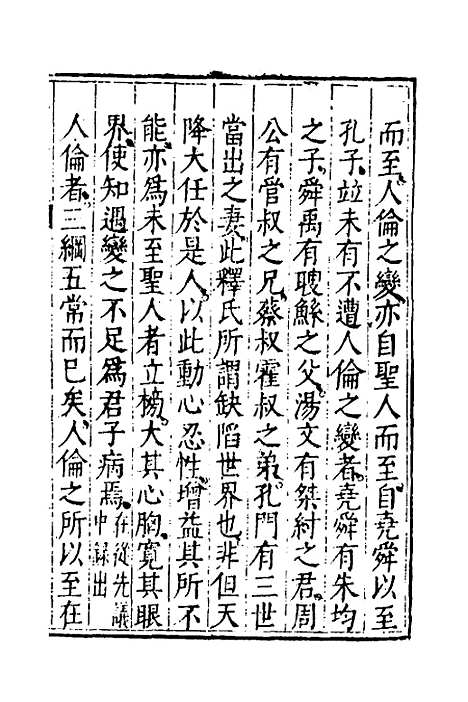 而至人倫之變亦自聖人而至自堯舜以至
孔子竝未有不遭人倫之變者堯舜有朱均
之子舜禹有瞍鯀之父湯文有桀紂之君周
公有管叔之兄蔡叔霍叔之弟孔門有三世
當出之妻此釋氏所謂缺陷世界也非但天
降大任於是人以此動心忍性增益其所不
能亦爲未至聖人者立榜大其心胸寬其眼
界使知遇變之不足爲君子病焉存從先議中錄出
人倫者三綱五常而已矣人倫之所以至在